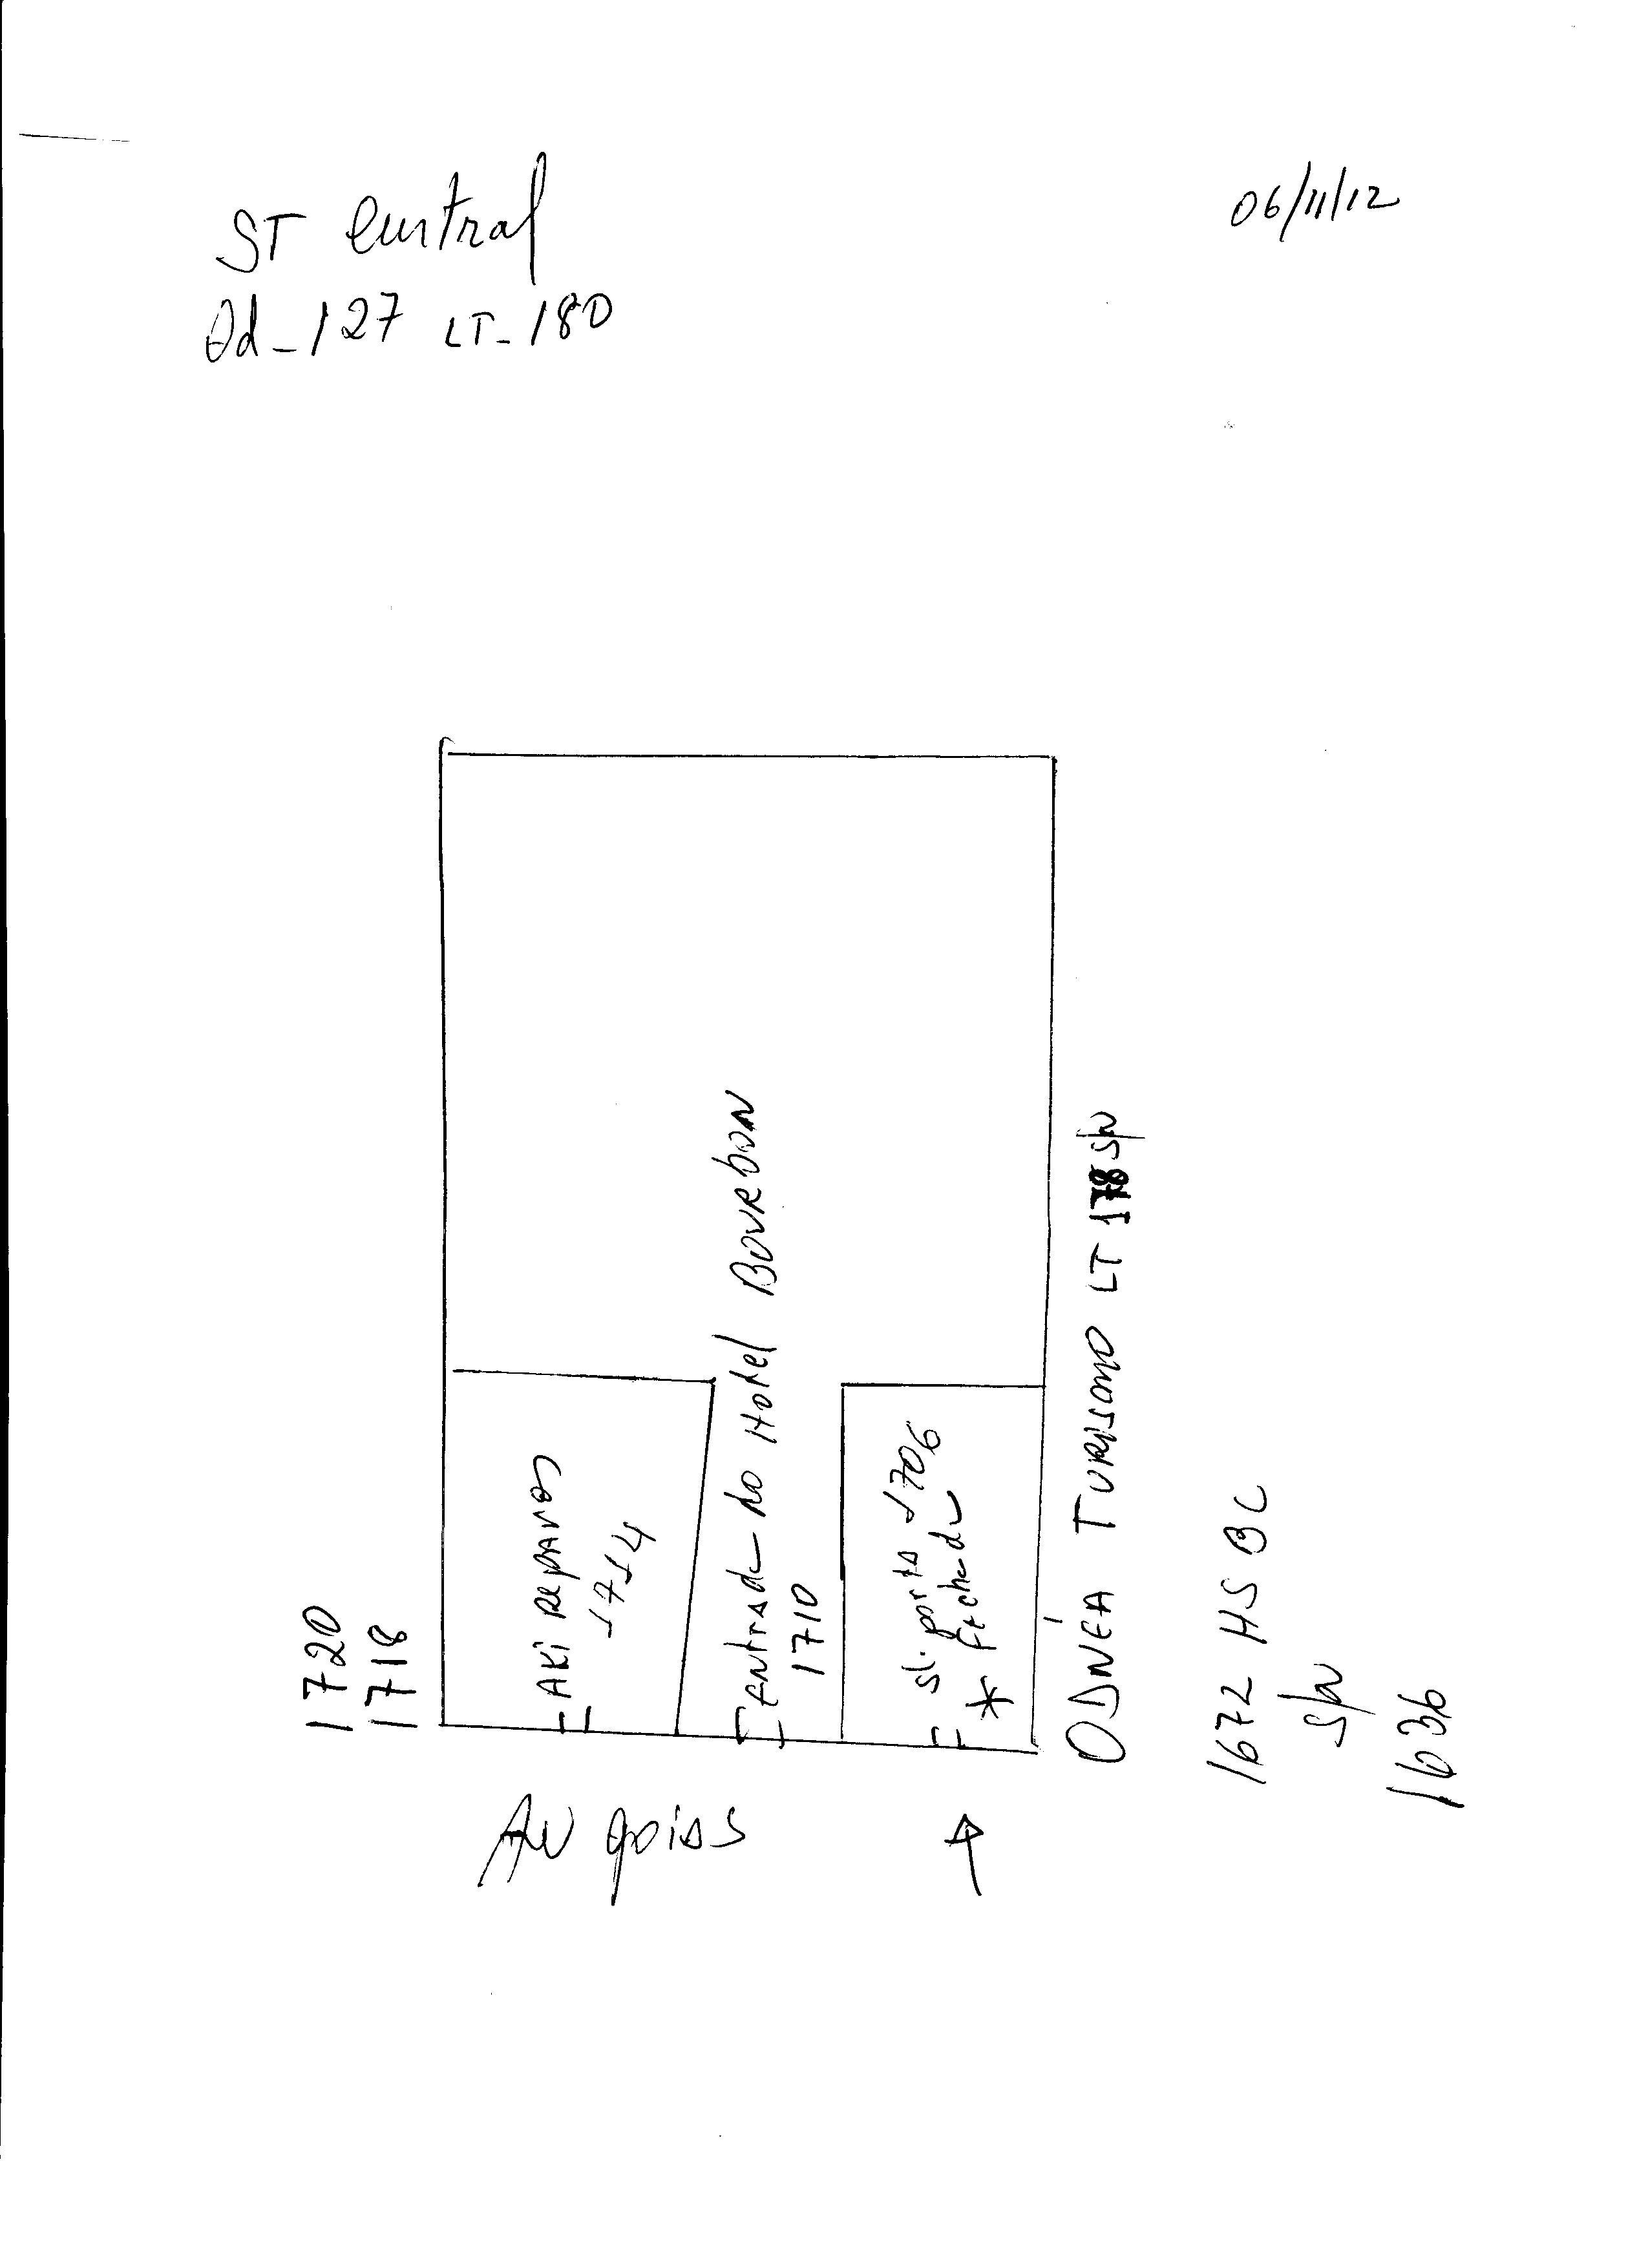 ST Central
06/11/12
Qd_127 LT_180
1720
1718
AKi Reparos
1714
Entrada do Hotel Bourbon
1710
sl. porta 1706
* fechada
Av goias
ODNEA TURISMO LT 178 S/N
1672 HSBC
S/N
1636